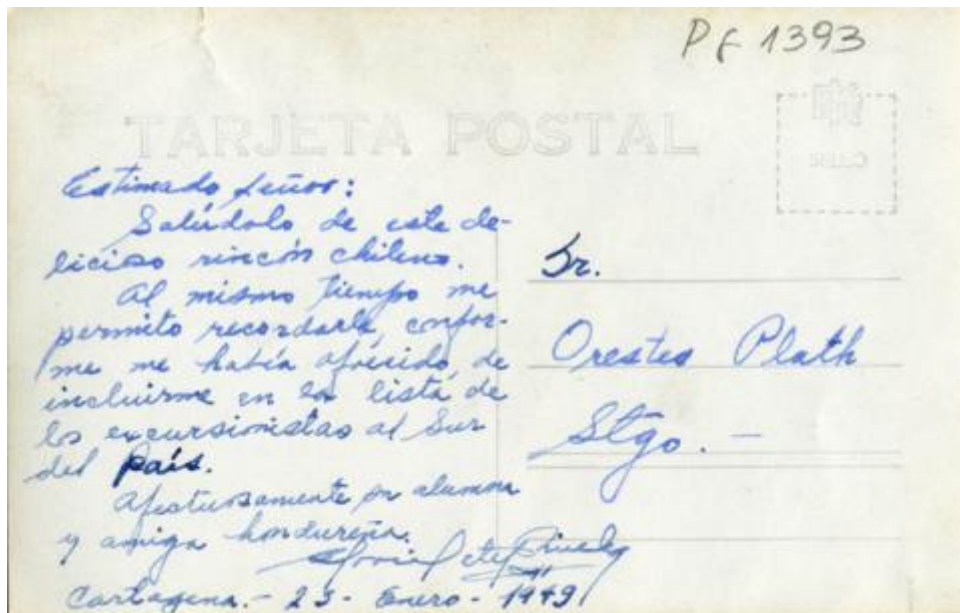 PF 1393
TARJETA POSTAL
Estimado señor:
Salúdolo de este de-
licioso rincón chileno.
Al mismo tiempo me
permito recordarle, confor-
me me había ofrecido, de
incluirme en la lista de
los excursionistas al Sur
del país.
Afectuosamente su alumna
y amiga hondureña.
Cartagena.- 23- Enero- 1949
Sr.
Orestes Plath
Stgo. -